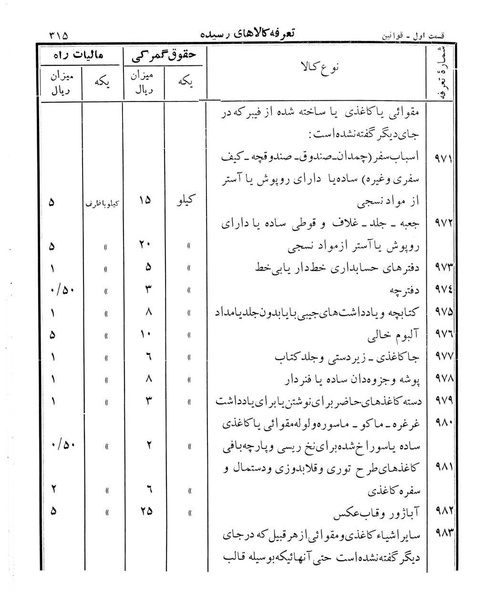 قسمت اول ـ قوانین تعرفه کالاهای رسیده ۳۱۵
شمارهٔ تعرفه نوع کالا حقوق گمرکی مالیات راه
یکه میزان ریال یکه میزان ریال
مقوائی یا کاغذی یا ساخته شده از فیبر که در
جای دیگر گفته نشده است:
۹۷۱ اسباب سفر (چمدان ـ صندوق ـ صندوقچه ـ کیف
سفری و غیره) ساده یا دارای روپوش یا آستر
از مواد نسجی کیلو ۱۵ کیلو باظرف ۵
۹۷۲ جعبه ـ جلد ـ غلاف و قوطی ساده یا دارای
روپوش یا آستر از مواد نسجی » ۲۰ » ۵
۹۷۳ دفترهای حسابداری خط‌دار یا بی‌خط » ۵ » ۱
۹۷٤ دفترچه » ۳ » ۰/۵۰
۹۷۵ کتابچه و یادداشت‌های جیبی با یا بدون جلد یا مداد » ۸ » ۱
۹۷۶ آلبوم خالی » ۱۰ » ۵
۹۷۷ جا کاغذی ـ زیردستی و جلد کتاب » ۶ » ۱
۹۷۸ پوشه و جزوه‌دان ساده یا فنردار » ۸ » ۱
۹۷۹ دسته کاغذهای حاضر برای نوشتن یا برای یادداشت » ۳ » ۱
۹۸۰ غرغره ـ ماکو ـ ماسوره و لوله مقوائی یا کاغذی
ساده یا سوراخ شده برای نخ ریسی و پارچه بافی » ۲ » ۰/۵۰
۹۸۱ کاغذهای طرح توری و قلابدوزی و دستمال و
سفره کاغذی » ۶ » ۲
۹۸۲ آباژور و قاب عکس » ۲۵ » ۵
۹۸۳ سایر اشیاء کاغذی و مقوائی از هر قبیل که در جای
دیگر گفته نشده است حتی آنهائیکه بوسیله قالب